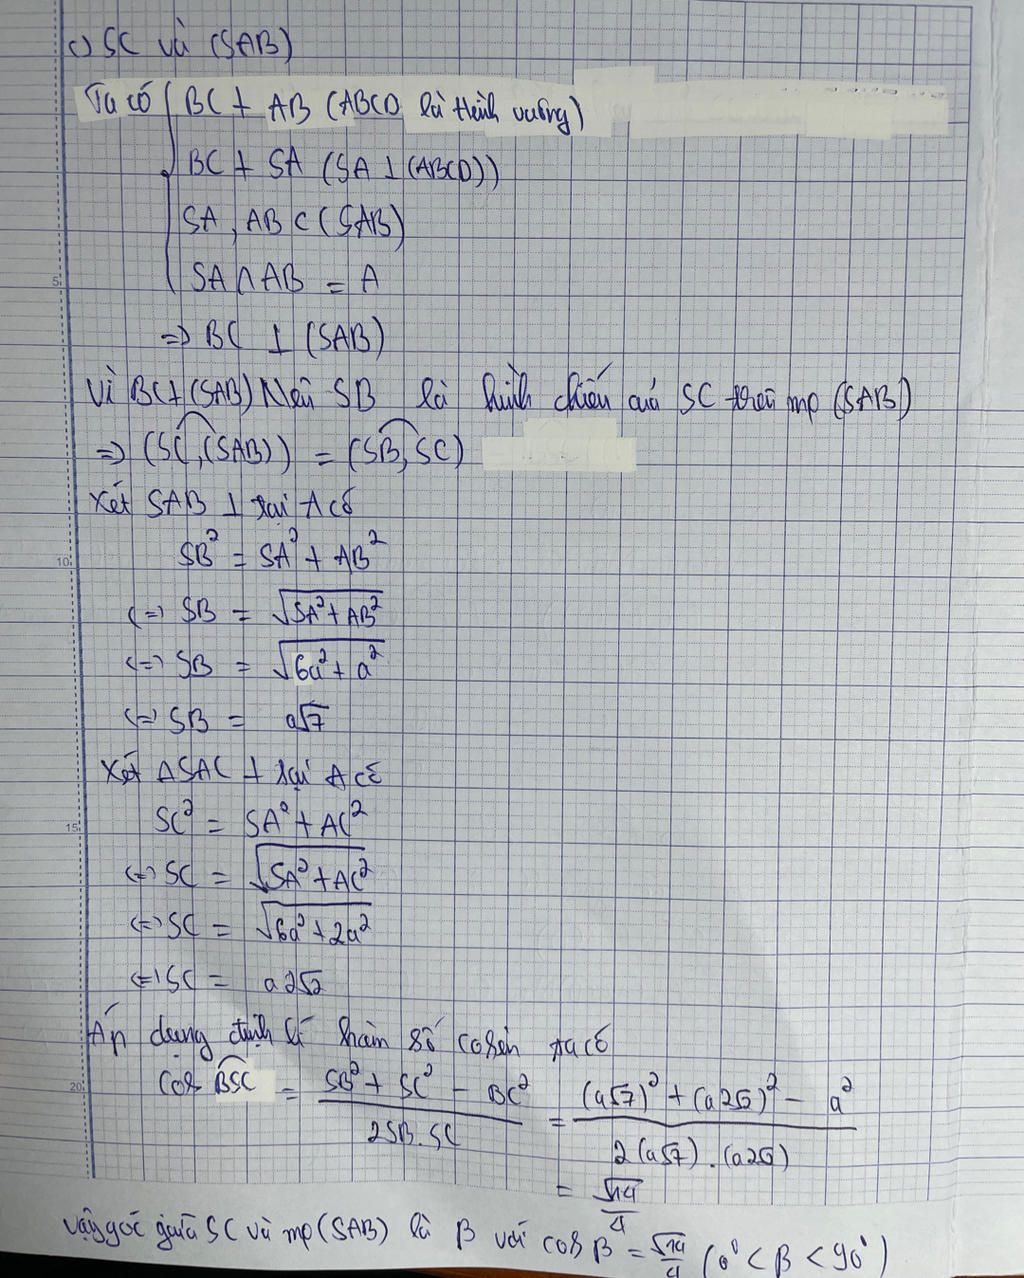 c) SC và (SAB)
Ta có { BC ⊥ AB (ABCD là Hình vuông)
BC ⊥ SA (SA ⊥ (ABCD))
SA, AB ⊂ (SAB)
SA ∩ AB = A
=> BC ⊥ (SAB)
Vì BC ⊥ (SAB) Nên SB là hình chiếu của SC trên mp (SAB)
=> (SC, (SAB)) = (SB, SC)
Xét SAB ⊥ tại A có
SB² = SA² + AB²
<=> SB = √(SA² + AB²)
<=> SB = √(6a² + a²)
<=> SB = a√7
Xét ΔSAC ⊥ tại A có
SC² = SA² + AC²
<=> SC = √(SA² + AC²)
<=> SC = √(6a² + 2a²)
<=> SC = a2√2
Áp dụng định lí hàm số cosin ta có
Cos BSC = (SB² + SC² - BC²) / (2SB.SC) = ((a√7)² + (a2√2)² - a²) / (2(a√7).(a2√2))
= √14/4
Vậy góc giữa SC và mp (SAB) là β với cos β = √14/4 (0° < β < 90°)
5
10
15
20